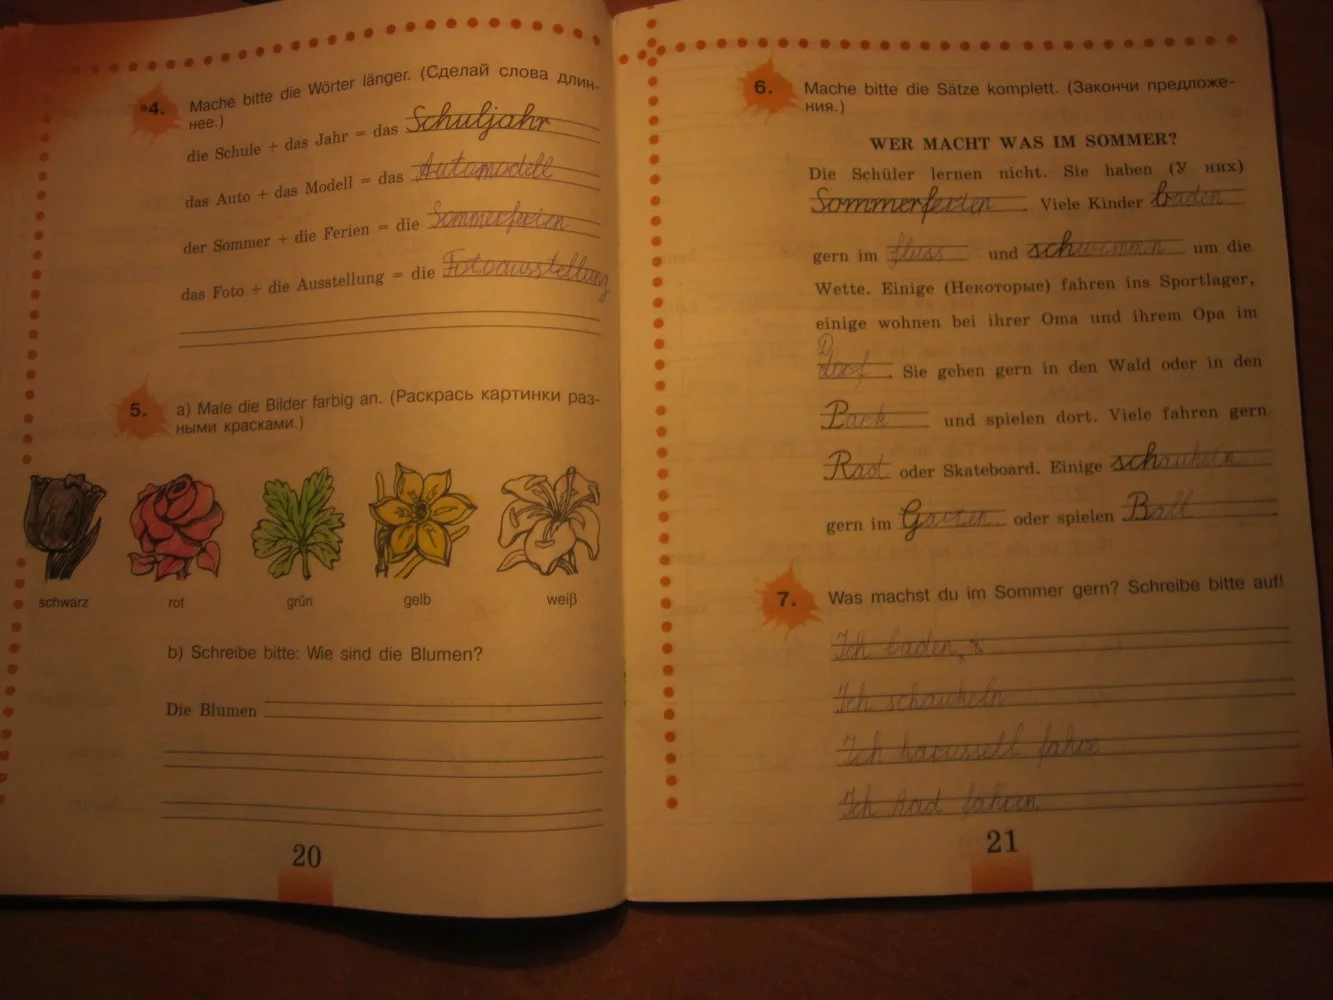 *4. Mache bitte die Wörter länger. (Сделай слова длин-
нее.)
die Schule + das Jahr = das Schuljahr
das Auto + das Modell = das Automodell
der Sommer + die Ferien = die Sommerferien
das Foto + die Ausstellung = die Fotoausstellung
5. a) Male die Bilder farbig an. (Раскрась картинки раз-
ными красками.)
schwarz rot grün gelb weiß
b) Schreibe bitte: Wie sind die Blumen?
Die Blumen
20
6. Mache bitte die Sätze komplett. (Закончи предложе-
ния.)
WER MACHT WAS IM SOMMER?
Die Schüler lernen nicht. Sie haben (У них)
Sommerferien Viele Kinder baden
gern im fluss und schwimmen um die
Wette. Einige (Некоторые) fahren ins Sportlager,
einige wohnen bei ihrer Oma und ihrem Opa im
D
dorf. Sie gehen gern in den Wald oder in den
Park und spielen dort. Viele fahren gern
Rad oder Skateboard. Einige schaukeln
gern im Garten oder spielen Ball
7. Was machst du im Sommer gern? Schreibe bitte auf!
Ich baden
Ich schaukeln
Ich karussell fahre
Ich Rad fahren
21